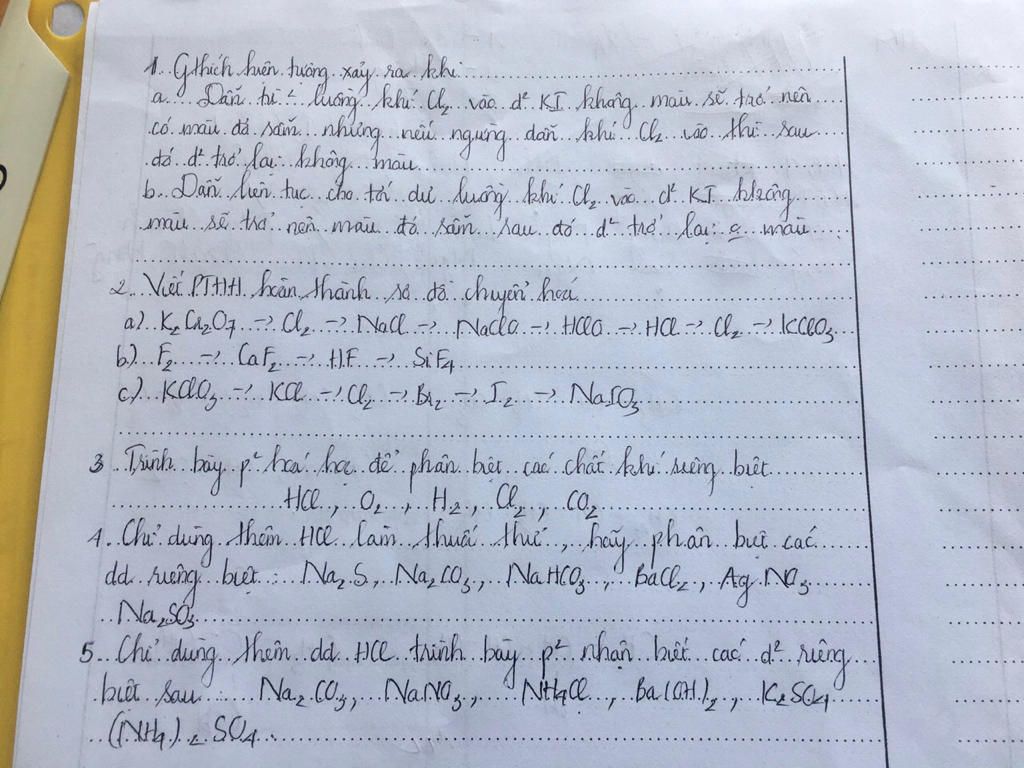 1. Gthích hiện tượng xảy ra khi:
a. Dẫn từ² luồng khí Cl₂ vào d² KI không màu sẽ trở nên
có màu đỏ sẫm nhưng nếu ngưng dẫn khí Cl₂ vào thì sau
đó d² trở lại không màu
b. Dẫn liên tục cho tới dư luồng khí Cl₂ vào d² KI không
màu sẽ trở nên màu đỏ sẫm sau đó d² trở lại màu
2. Viết PTHH hoàn thành sơ đồ chuyển hoá
a) K₂Cr₂O₇ → Cl₂ → NaCl → NaClO → HClO → HCl → Cl₂ → KClO₃
b) F₂ → CaF₂ → HF → SiF₄
c) KClO₃ → KCl → Cl₂ → Br₂ → I₂ → NaIO₃
3 Trình bày p² hoá học để phân biệt các chất khí riêng biệt
HCl, O₂, H₂, Cl₂, CO₂
4. Chỉ dùng thêm HCl làm thuốc thử, hãy phân biệt các
dd riêng biệt: Na₂S, Na₂CO₃, NaHCO₃, BaCl₂, AgNO₃
Na₂SO₃
5. Chỉ dùng thêm dd HCl trình bày p² nhận biết các d² riêng
biệt sau: Na₂CO₃, NaNO₃, NH₄Cl, Ba(OH)₂, K₂SO₄
(NH₄)₂SO₄.